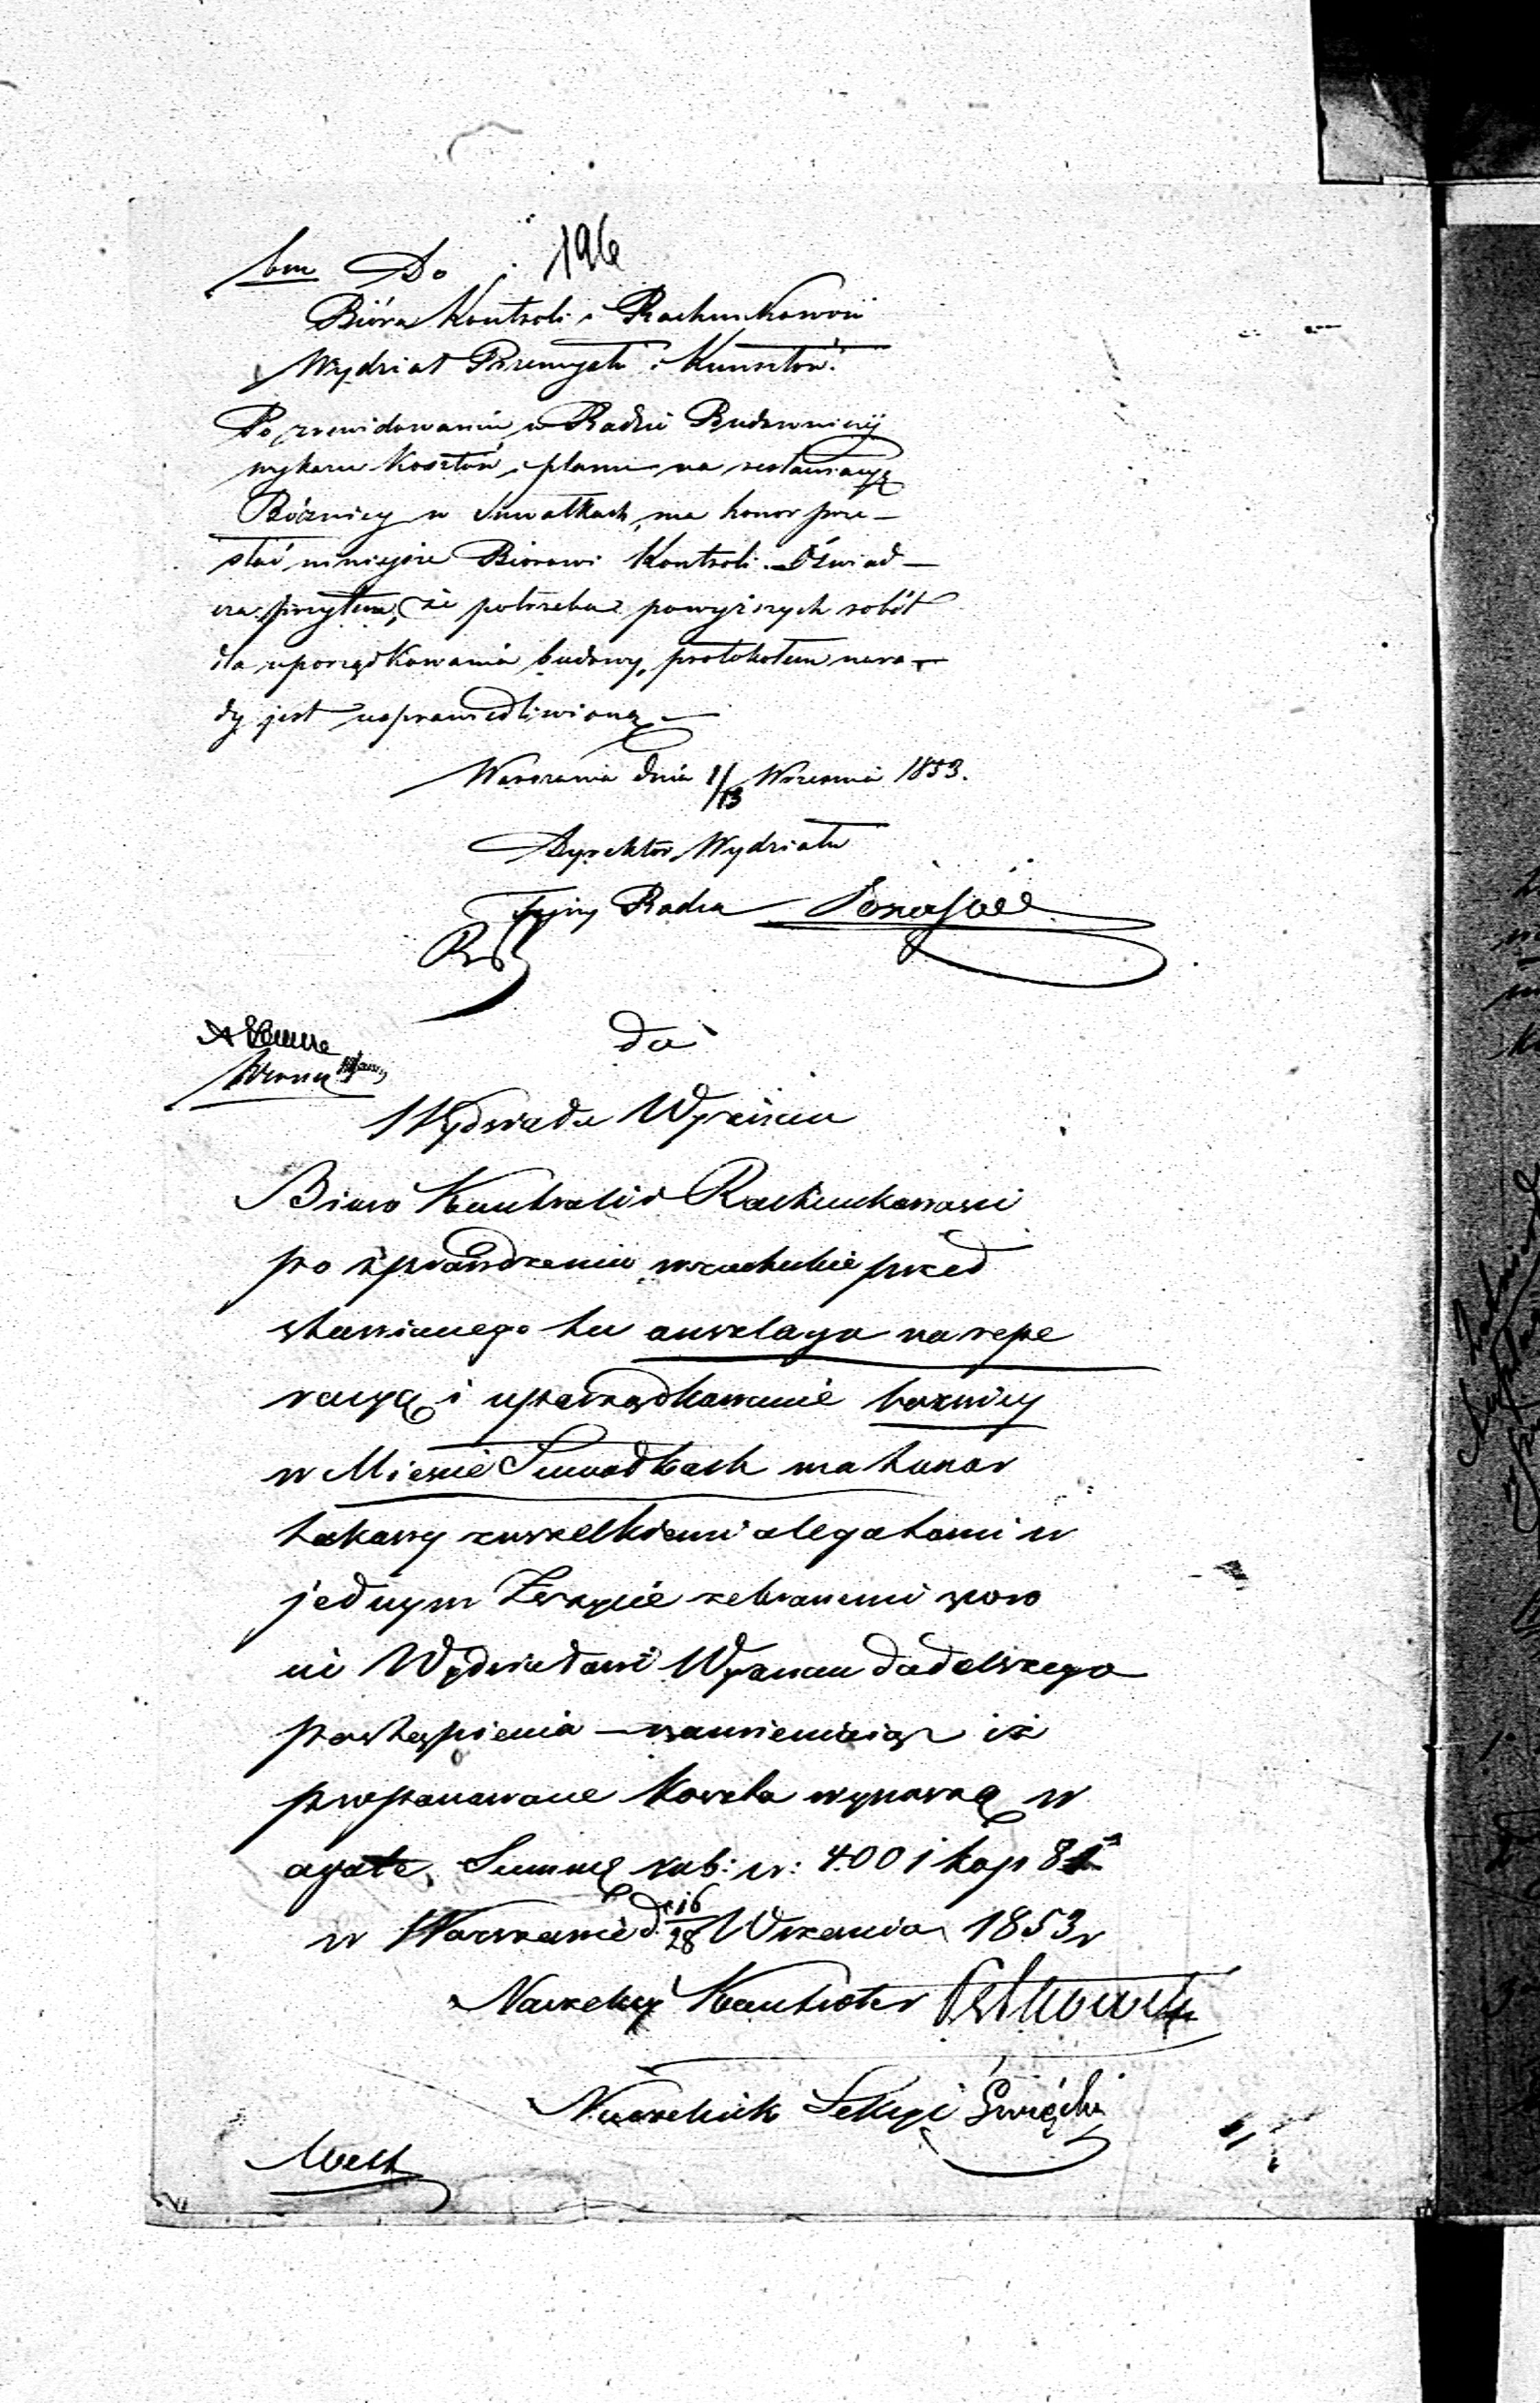 Do 196
Bióra Kontroli i Rachunkowoś
Wydział Przemysłu i Kunsztów.
Po zrewidowaniu w Radzie Budowniczej
wykazu kosztów i planu na restauracyę
Bóżnicy w Suwałkach, ma honor prze-
słać niniejsze Biórowi Kontroli. Oświad-
cza przytem, że potrzeba powyższych robót
dla uporządkowania budowy, protokołem nara-
dy jest usprawiedliwioną.—
Warszawa dnia 1/13 Września 1853.
Dyrektor Wydziału
Tajny Radca
do
Wydziału Wyznań
Biuro Kontroli i Rachunkowości
po sprawdzeniu w rachubie przed
stawionego tu anszlagu na repe
racyą i uporządkowanie bożnicy
w Mieście Suwałkach ma honor
takowy z wszelkiemi alegatami w
jednym Zeszycie zebranemi zwró
cić Wydziałowi Wyznań do dalszego
postąpienia — namieniając iż
proponowane koszta wynoszą w
ogóle Summę rub: sr: 400 i kop 81
w Warszawie d. 16/28 Września 1853 r
Naczelny Kontroler
Naczelnik Sekcyi Święcki